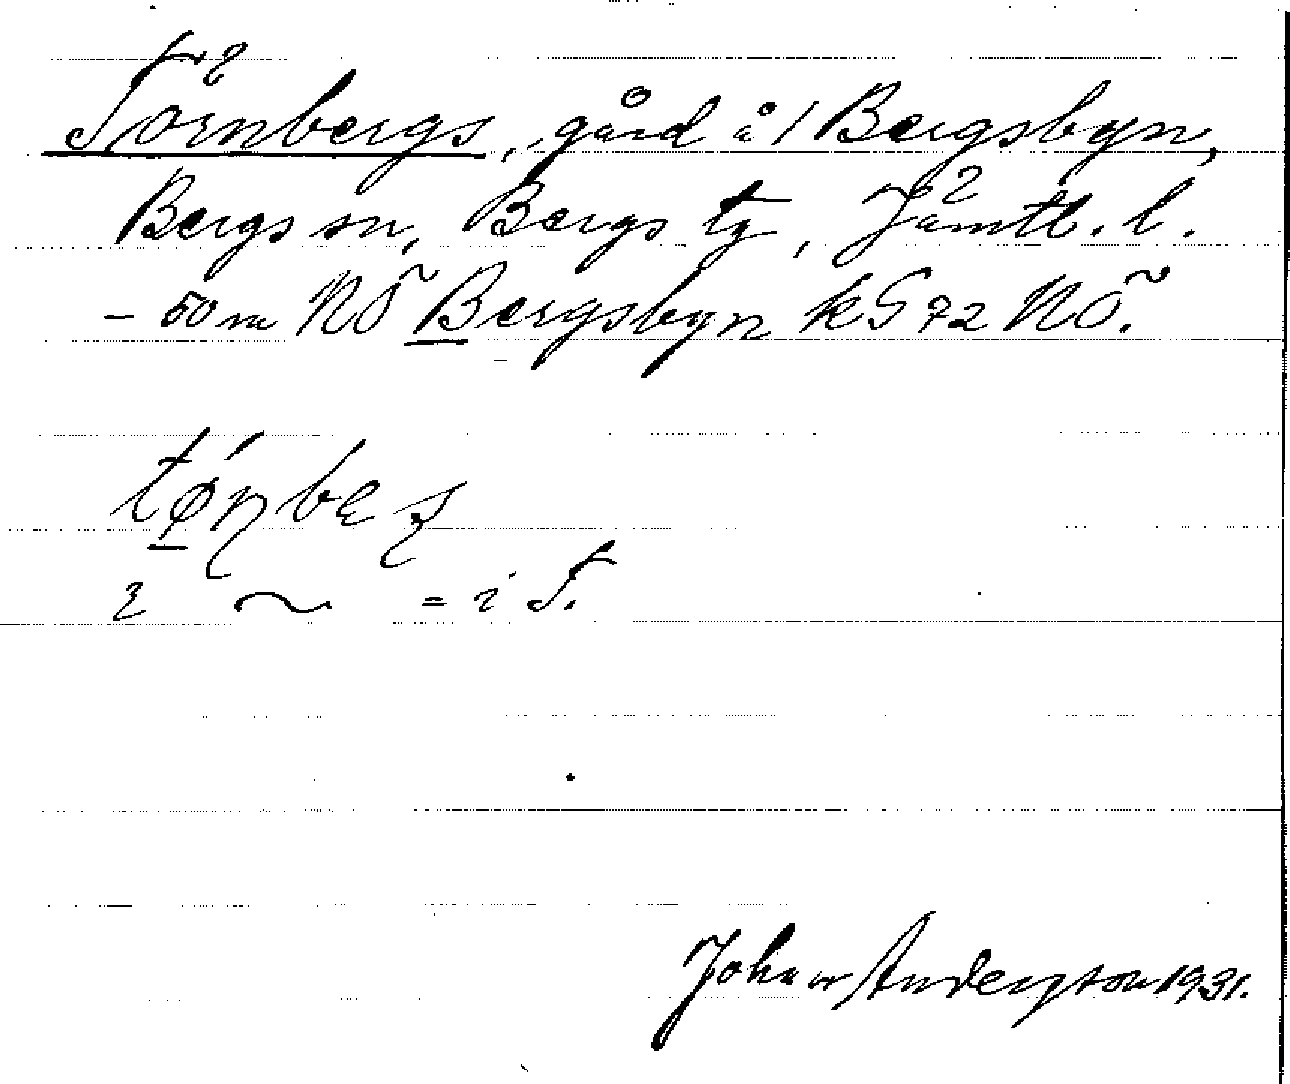 Törnbergs, gård å /Bergsbyn,
Bergs sn, Bergs tg, Jämtl. l.
– 50 m NÖ Bergsbyn kS 72 NÖ.
= i T.
Anderson 1931.